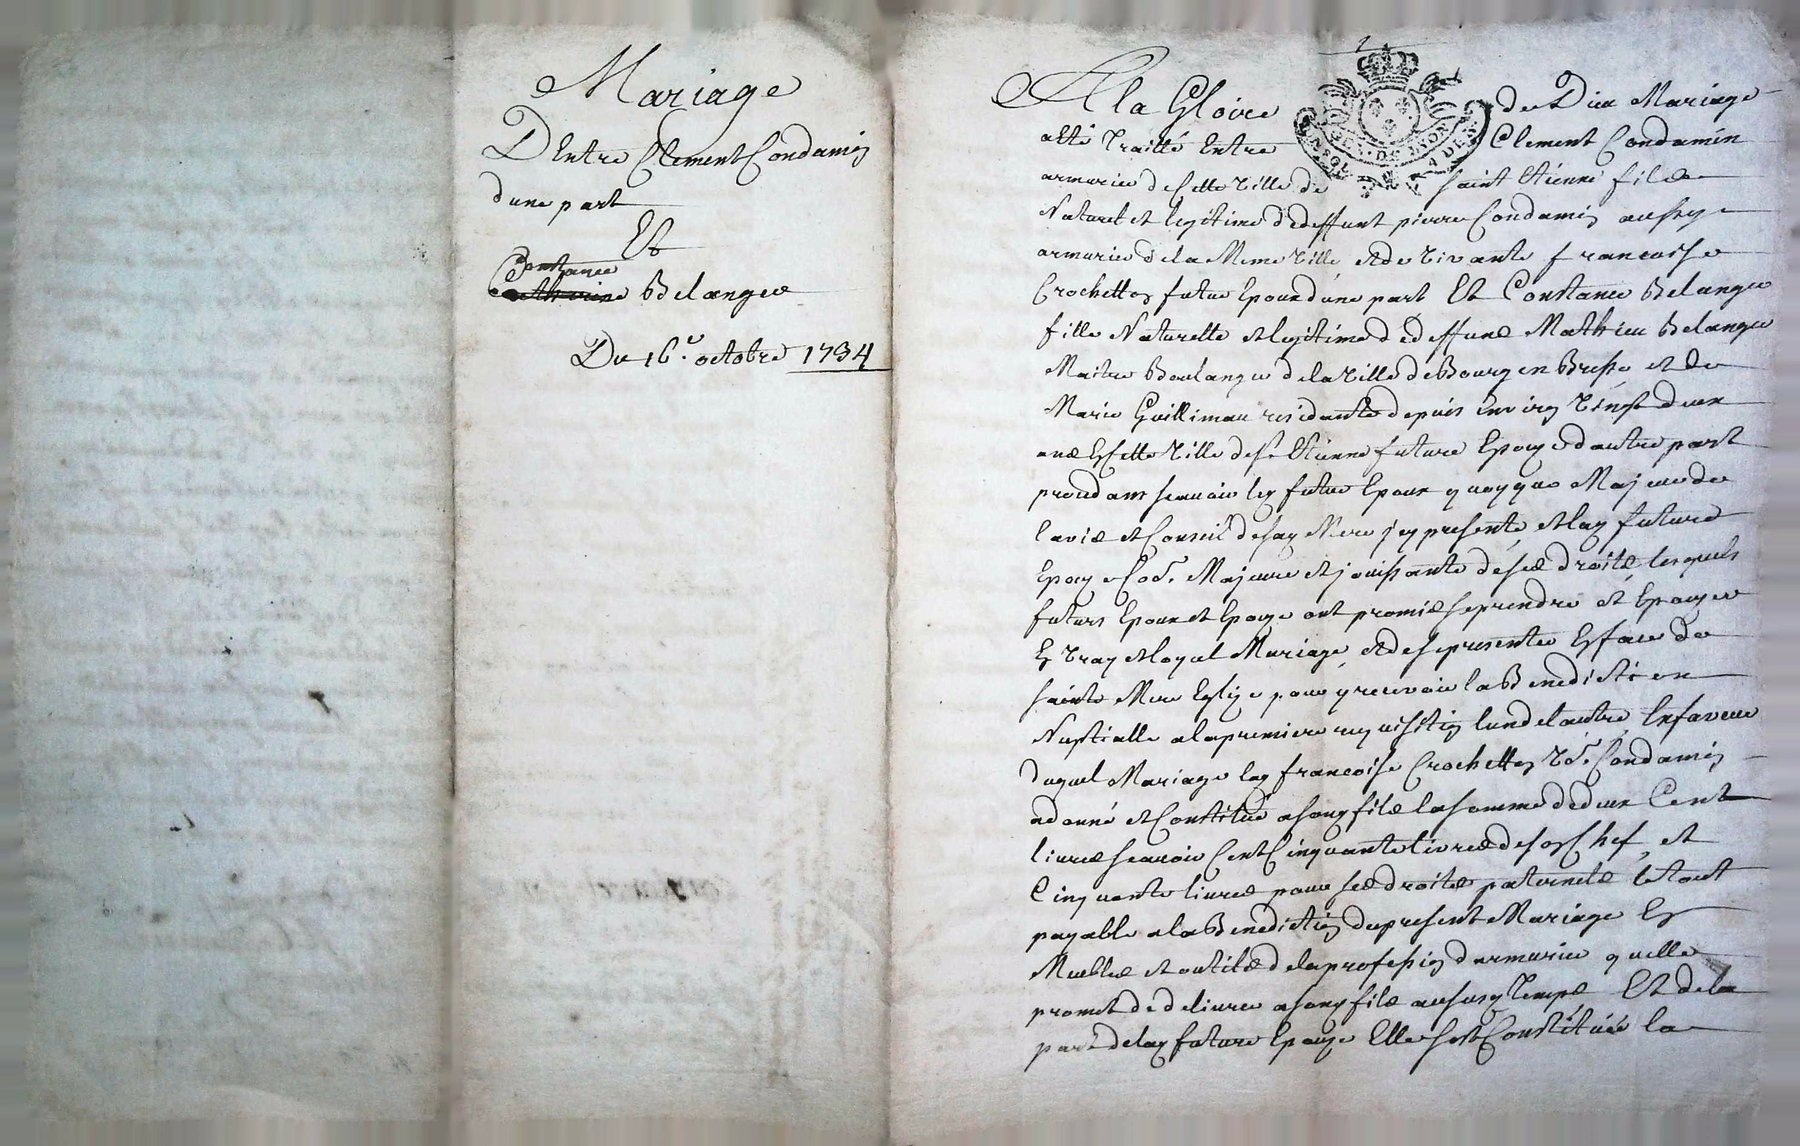 Mariage
D'Entre Clement Condamin
dune part
Et
Constance
Catherine Belanger
Du 16.e octobre 1734
A la Gloire de Dieu Mariage
GEN. DE LYON
a esté Traitté Entre Clement Condamin
armurier de cette Ville de saint Etienne filz
Naturel et legitime de deffunt pierre Condamin aussy
armurier de la Meme Ville et de Vivante francoise
Crochetton futur Epoux d'une part Et Constance Belanger
fille Naturelle et legitime de deffunt Mathieu Belanger
Maitre Boulanger de la Ville de Bourg en Bresse et de
Marie Guilliman residante depuis Environ Vingt deux
ans En cette Ville de St Etienne future Epouze d'autre part
procedans scavoir le futur Epoux quoyque Majeur de
lavis et Conseil de sa Mere icy presente et la future
Epouze Majeure et jouissante de ses droits lesquels
futurs Epoux et Epouze ont promis se prendre et Epouzer
En Vray et loyal Mariage et de se presenter En face de
sainte Mere Eglize pour y recevoir la Benediction
Nuptialle a la premiere requisition lun de lautre, En faveur
duquel Mariage francoise Crochetton Condamin
a donné et Constitué a son filz la somme de deux Cent
livres scavoir Cent Cinquante livres de son Chef, et
Cinquante livres pour ses droits paternels le tout
payable a la Benediction du present Mariage En
Meubles et outils de la profession d'armurier quelle
promet de delivrer a son filz au susd Temps Et de la
part de la future Epouze Elle s'est Constituée la